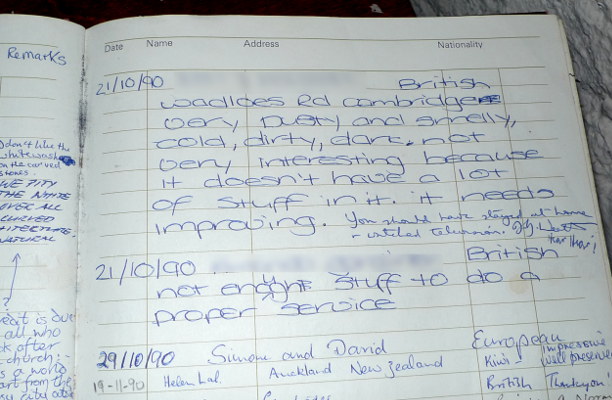 Remarks
Date Name Address Nationality
21/10/90 British
wadloes Rd cambridge
very Dusty and smelly,
cold, dirty, dark. not
very interesting because
it doesn't have a lot
of stuff in it. it needs
improving. You should have stayed at home
+ watched television.
21/10/90 British
not enoght stuff to do a
proper service
29/10/90 Simone and David European Impressive
Auckland New Zealand Kiwis well preserved
19-11-90 Helen Lal. British Thankyou!
I don't like the
whitewash
on the carved
stones.
WE PITY
THE
OVER ALL
CURVED
NATURAL
?
great is our
all who
look after
church:-
is a world
apart from the
city